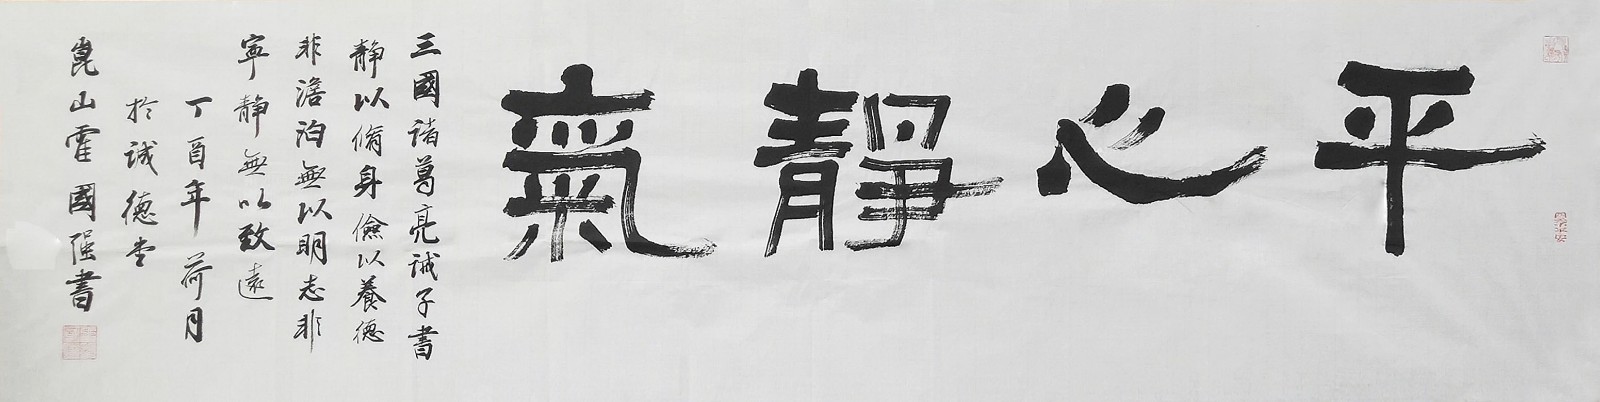 平心靜氣
三國諸葛亮誡子書
靜以脩身儉以養德
非澹泊無以明志非
寧靜無以致遠
丁酉年荷月
於誠德堂
崑山霍國強書